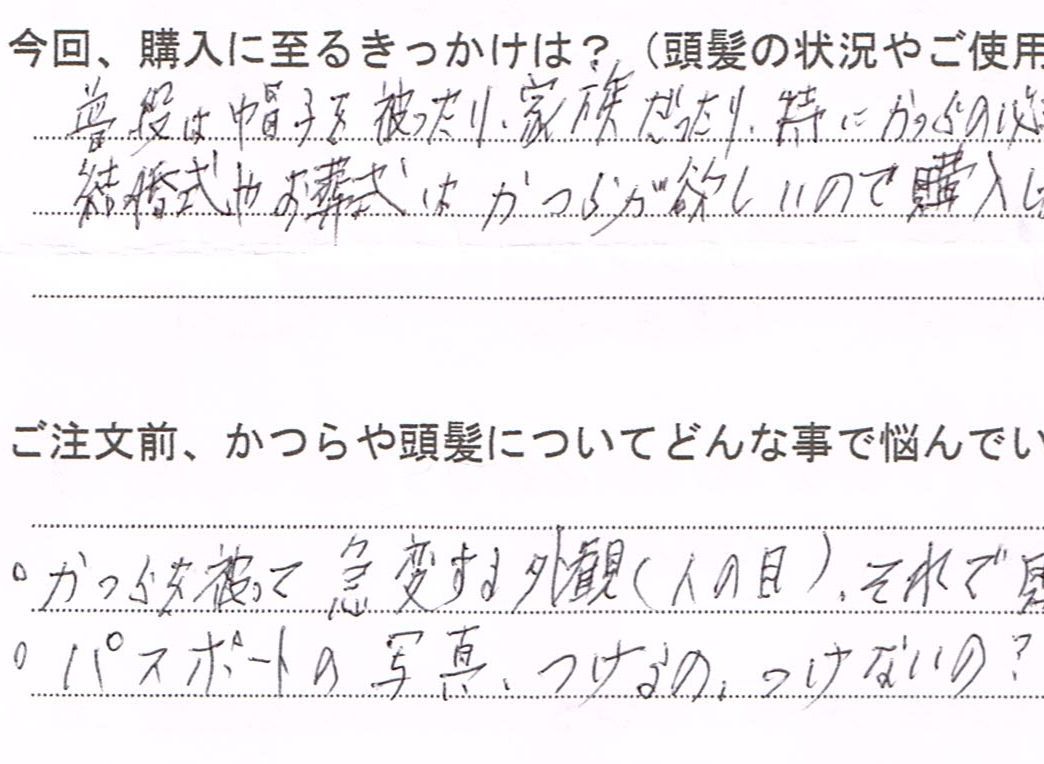 今回、購入に至るきっかけは？（頭髪の状況やご使用
普段は帽子を被ったり、家族だったり、特にかつらの必
結婚式やお葬式はかつらが欲しいので購入し
ご注文前、かつらや頭髪についてどんな事で悩んでい
○かつらを被って急変する外観（人の目）、それで
○パスポートの写真、つけるの、つけないの？